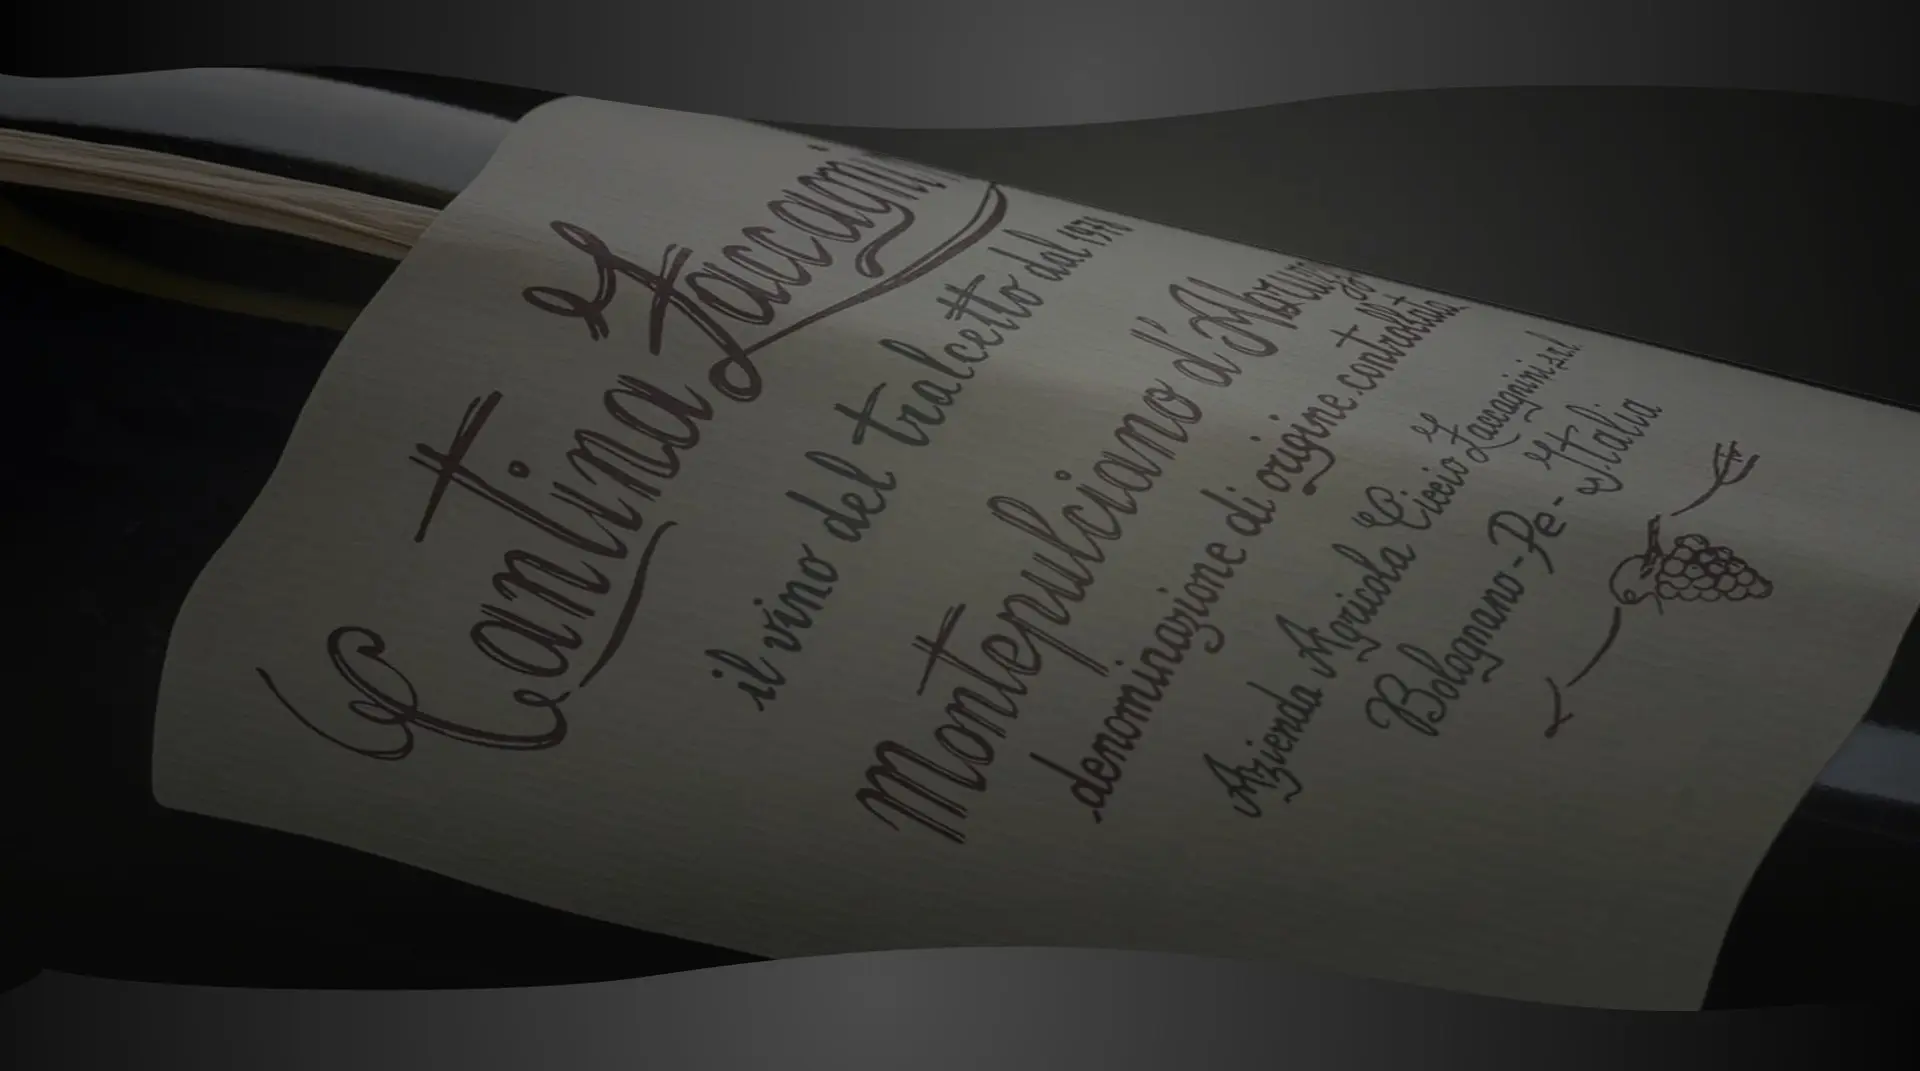 Cantina Zaccagnini
il vino del tralcetto dal 1978
Montepulciano d'Abruzzo
denominazione di origine controllata
Azienda Agricola Ciccio Zaccagnini s.r.l.
Bolognano - Pe - Italia